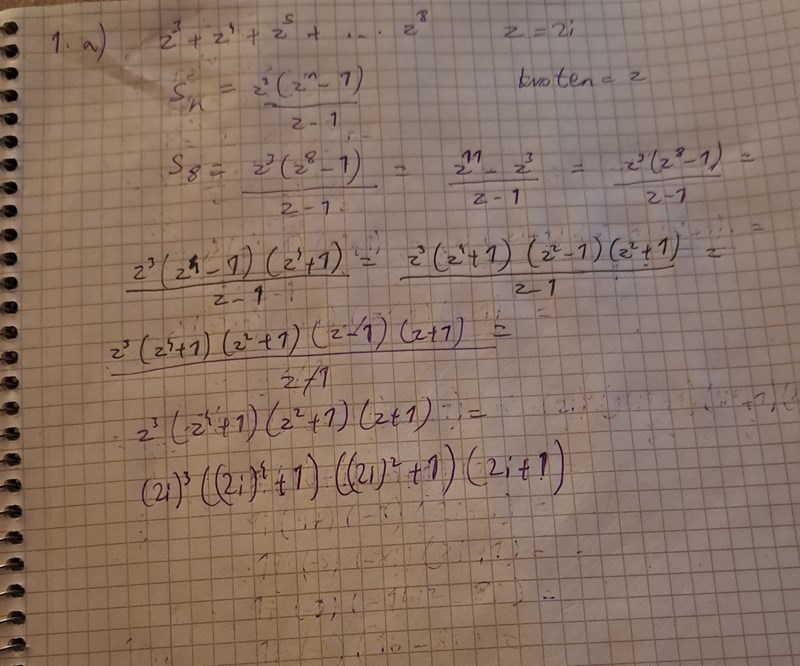 1. a) z³ + z⁴ + z⁵ + ... z⁸ z = 2i
Sₙ = z³(zⁿ - 1) / z - 1 kvoten = z
S₈ = z³(z⁸ - 1) / z - 1 = z¹¹ - z³ / z - 1 = z³(z⁸ - 1) / z - 1 =
z³(z⁴ - 1)(z⁴ + 1) / z - 1 = z³(z⁴ + 1)(z² - 1)(z² + 1) / z - 1 =
z³(z⁴ + 1)(z² + 1)(z - 1)(z + 1) / z - 1 =
z³(z⁴ + 1)(z² + 1)(z + 1) =
(2i)³((2i)⁴ + 1)((2i)² + 1)(2i + 1)